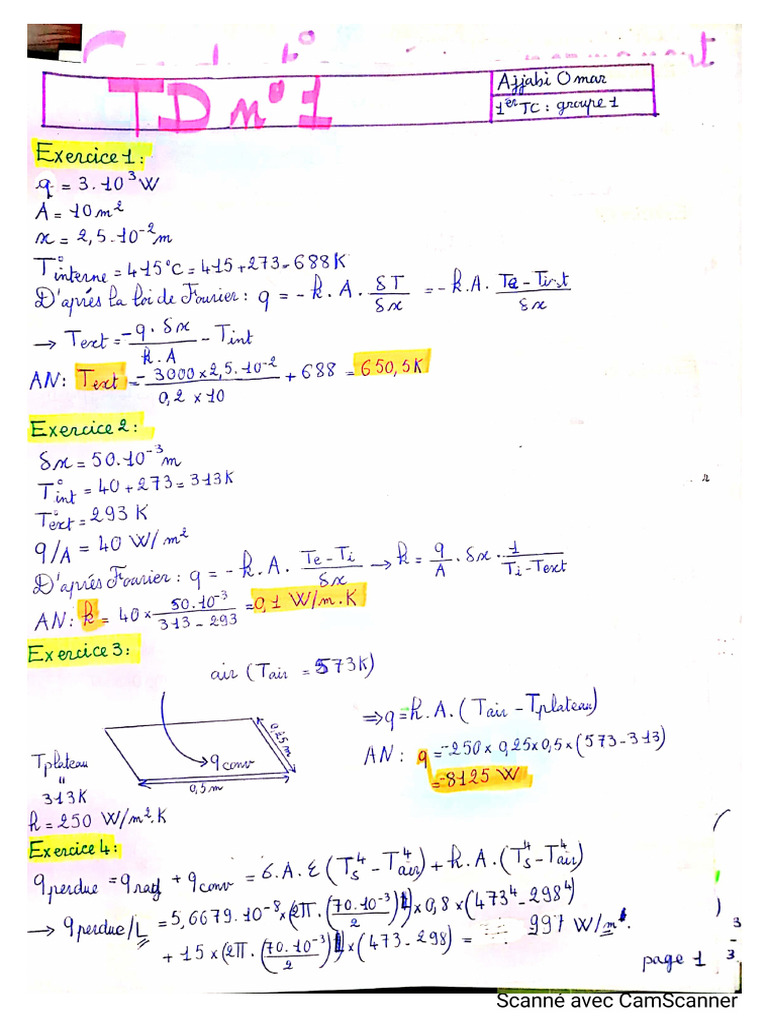 TD n° 1
Ajjabi Omar
1er TC : groupe 1
Exercice 1 :
q = 3.10³ W
A = 10 m²
x = 2,5.10⁻² m
T°interne = 415°C = 415 + 273 = 688 K
D'après la loi de Fourier : q = -k.A. δT/δx = -k.A. (Te - Tint)/δx
→ Text = (-q.δx)/(k.A) - Tint
AN : Text = -(3000 × 2,5.10⁻²)/(0,2 × 10) + 688 = 650,5 K
Exercice 2 :
δx = 50.10⁻³ m
T°int = 40 + 273 = 313 K
T°ext = 293 K
q/A = 40 W/m²
D'après Fourier : q = -k.A. (Te - Ti)/δx → k = q/A . δx . 1/(Ti - Text)
AN : k = 40 × (50.10⁻³)/(313 - 293) = 0,1 W/m.K
Exercice 3 :
air (Tair = 573K)
⇒ q = h.A.(Tair - Tplateau)
0,25 m
q conv
Tplateau
"
313K
0,5 m
AN : q = -250 × 0,25 × 0,5 × (573 - 313)
= -8125 W
h = 250 W/m².K
Exercice 4 :
q perdue = q rad + q conv = σ.A.ε (Ts⁴ - Tair⁴) + h.A.(Ts⁴ - Tair⁴)
→ q perdue/L = 5,6679.10⁻⁸ × (2π.(70.10⁻³)/2) × 0,8 × (473⁴ - 298⁴)
+ 15 × (2π.(70.10⁻³)/2) × (473 - 298) = 997 W/m.
page 1
3
-
3.
Scanné avec CamScanner